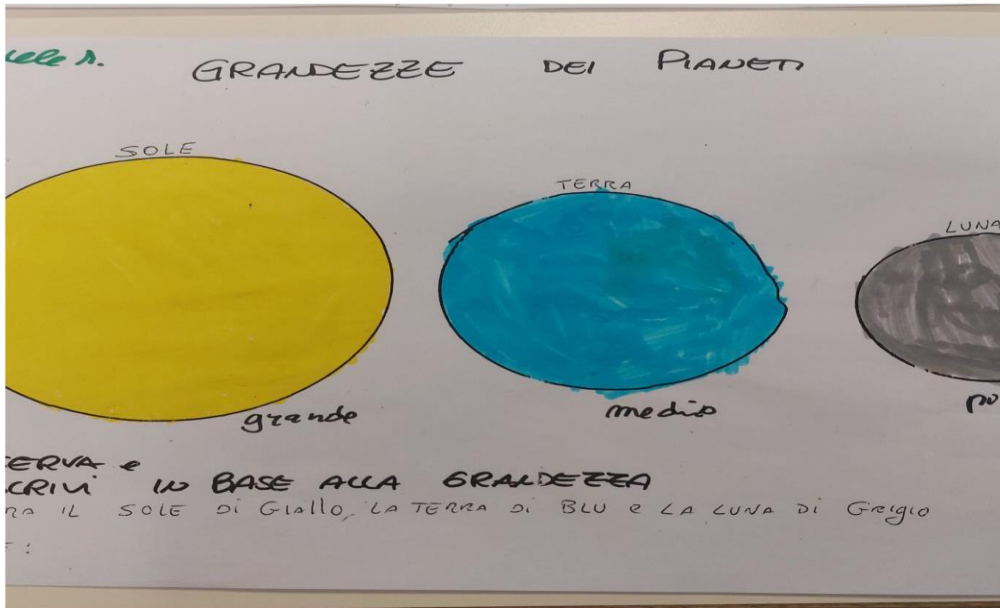 GRANDEZZE DEI PIANETI
SOLE
TERRA
LUNA
grande
medio
ERVA e
CRIVI IN BASE ALLA GRANDEZZA
RA IL SOLE DI GIALLO, LA TERRA DI BLU e LA LUNA DI GRIGIO